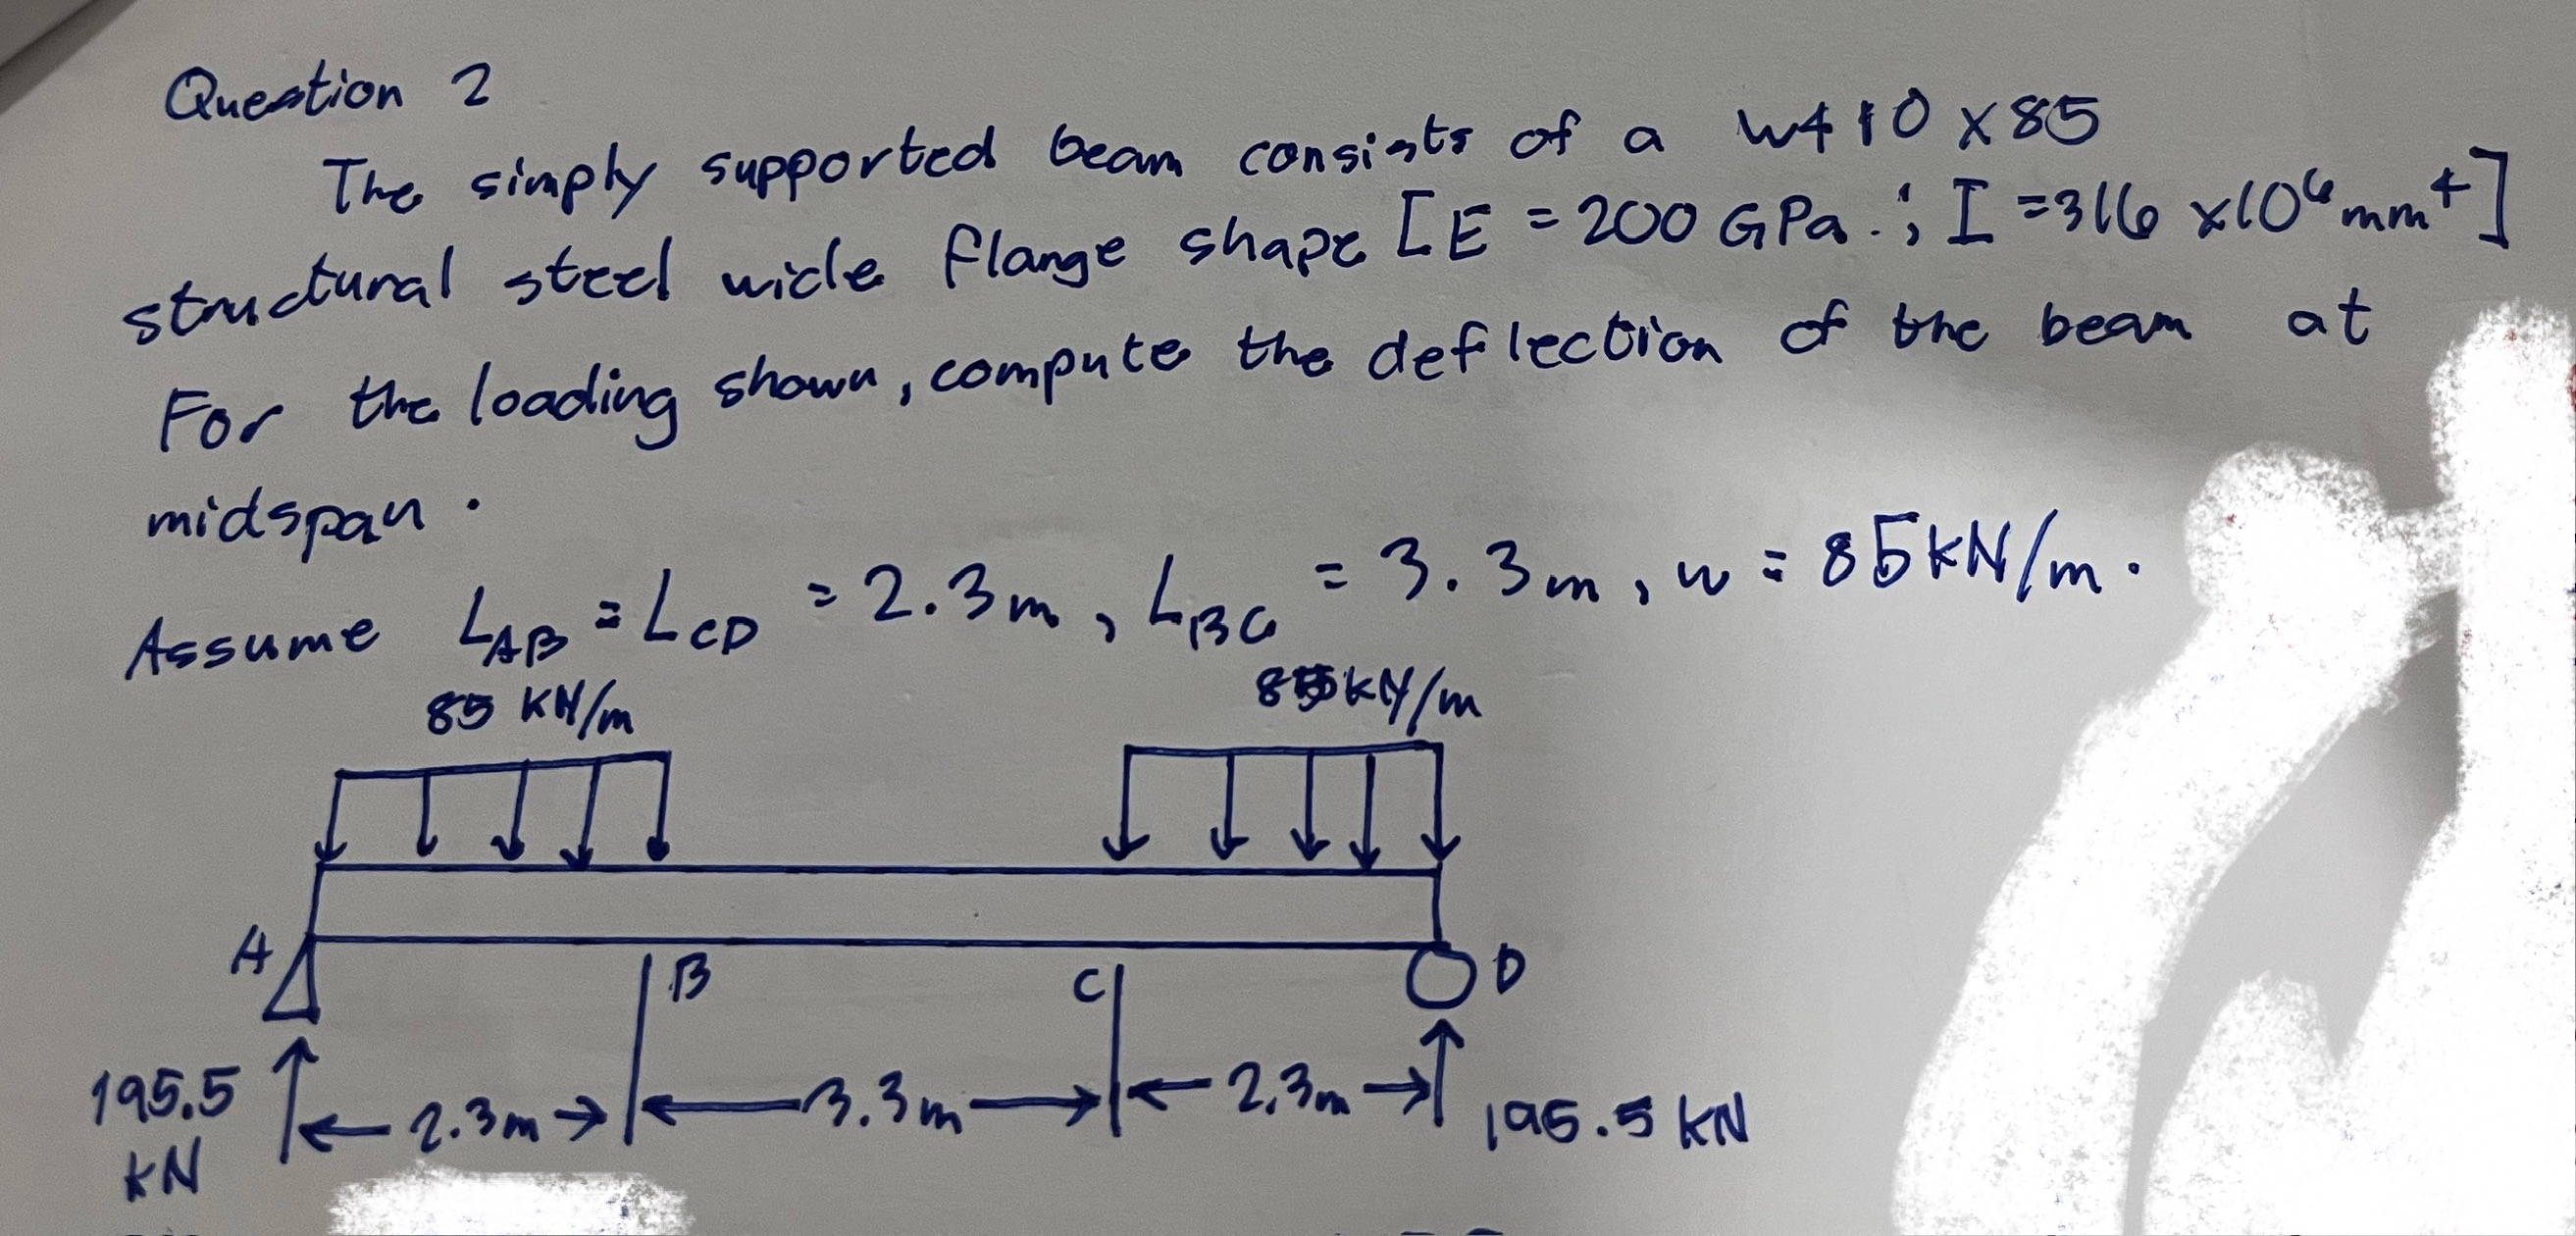 Question 2
The simply supported beam consists of a W410 x 85
structural steel wide flange shape [E = 200 GPa.; I = 316 x10⁶ mm⁴]
For the loading shown, compute the deflection of the beam at
midspan.
Assume L_AB = L_CD = 2.3m, L_BC = 3.3m, w = 85kN/m.
85 KN/m
85kN/m
A
B
C
D
195.5
kN
2.3m
3.3m
2.3m
195.5 kN